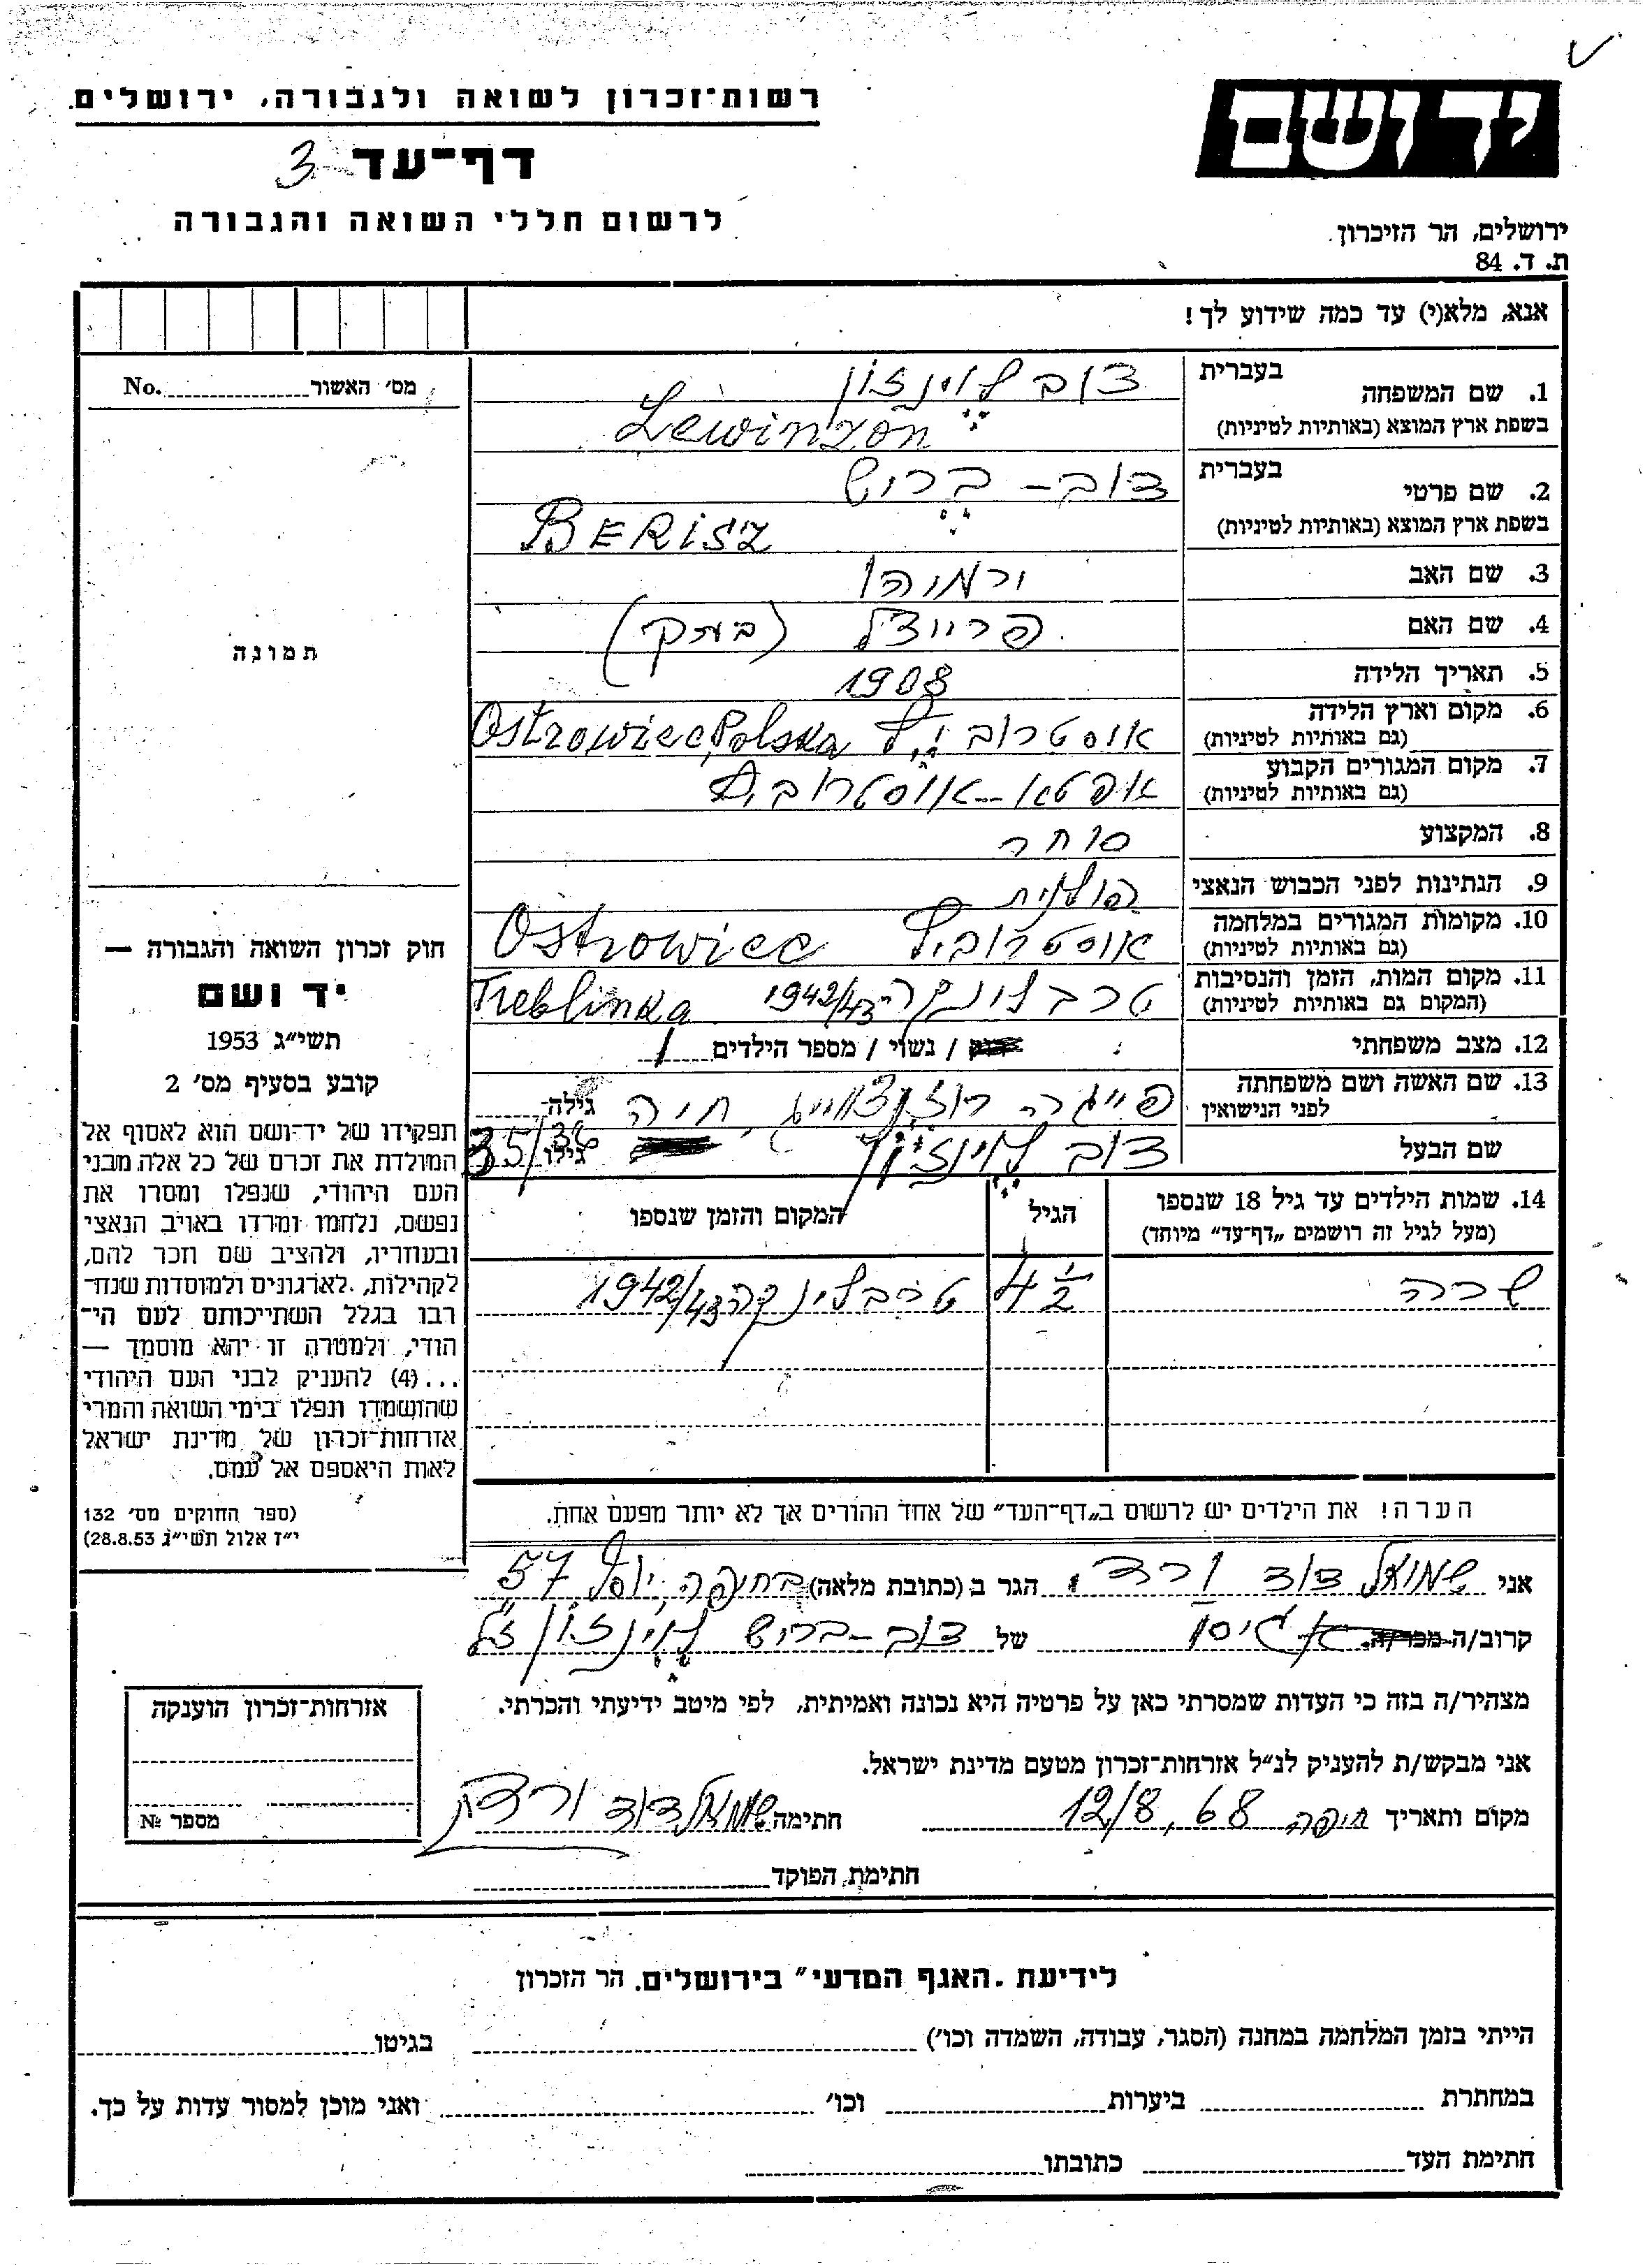 רשות־זכרון לשואה ולגבורה, ירושלים
יד ושם
דף־עד 3
לרשום חללי השואה והגבורה
ירושלים, הר הזיכרון
ת. ד. 84
אנא, מלא(י) עד כמה שידוע לך!
מס׳ האשור No.
תמונה
1. שם המשפחה בעברית דוב לוינזון
בשפת ארץ המוצא (באותיות לטיניות) Lewinzon
2. שם פרטי בעברית דוב - בריש
בשפת ארץ המוצא (באותיות לטיניות) BERISZ
3. שם האב ירמיהו
4. שם האם
5. תאריך הלידה 1908
6. מקום וארץ הלידה
(גם באותיות לטיניות) Ostrowiec, Polska
7. מקום המגורים הקבוע
(גם באותיות לטיניות)
8. המקצוע סוחר
9. הנתינות לפני הכבוש הנאצי פולנית
10. מקומות המגורים במלחמה
(גם באותיות לטיניות) Ostrowiec
11. מקום המות, הזמן והנסיבות
(המקום גם באותיות לטיניות) טרבלינקה 1942/43 Treblinka
12. מצב משפחתי / נשוי / מספר הילדים 1
13. שם האשה ושם משפחתה
לפני הנישואין פייגה רוזנצווייג, חיה גילה
שם הבעל דוב לוינזון גילו 35/36
14. שמות הילדים עד גיל 18 שנספו הגיל המקום והזמן שנספו
(מעל לגיל זה רושמים „דף־עד״ מיוחד)
שרה 4 1/2 טרבלינקה 1942/43
חוק זכרון השואה והגבורה —
יד ושם
תשי״ג 1953
קובע בסעיף מס׳ 2
תפקידו של יד־ושם הוא לאסוף אל
המולדת את זכרם של כל אלה מבני
העם היהודי, שנפלו ומסרו את
נפשם, נלחמו ומרדו באויב הנאצי
ובעוזריו, ולהציב שם וזכר להם,
לקהילות, לארגונים ולמוסדות שנח־
רבו בגלל השתייכותם לעם הי־
הודי, ולמטרה זו יהא מוסמך —
...(4) להעניק לבני העם היהודי
שהושמדו ונפלו בימי השואה והמרי
אזרחות־זכרון של מדינת ישראל
לאות היאספם אל עמם.
(ספר החוקים מס׳ 132
י״ז אלול תשי״ג 28.8.53)
הערה! את הילדים יש לרשום ב„דף־העד״ של אחד ההורים אך לא יותר מפעם אחת.
אני שמואל דוד ורדי הגר ב (כתובת מלאה) בחיפה, 57
קרוב/ה מכר/ה גיסו של דוב - בריש לוינזון ז״ל
מצהיר/ה בזה כי העדות שמסרתי כאן על פרטיה היא נכונה ואמיתית, לפי מיטב ידיעתי והכרתי.
אני מבקש/ת להעניק לנ״ל אזרחות־זכרון מטעם מדינת ישראל.
מקום ותאריך חיפה 12/8, 68 חתימה שמואל דוד ורדי
חתימת הפוקד
אזרחות־זכרון הוענקה
מספר №
לידיעת „האגף המדעי״ בירושלים. הר הזכרון
הייתי בזמן המלחמה במחנה (הסגר, עבודה, השמדה וכו׳) בגיטו
במחתרת ביערות וכו׳ ואני מוכן למסור עדות על כך.
חתימת העד כתובתו